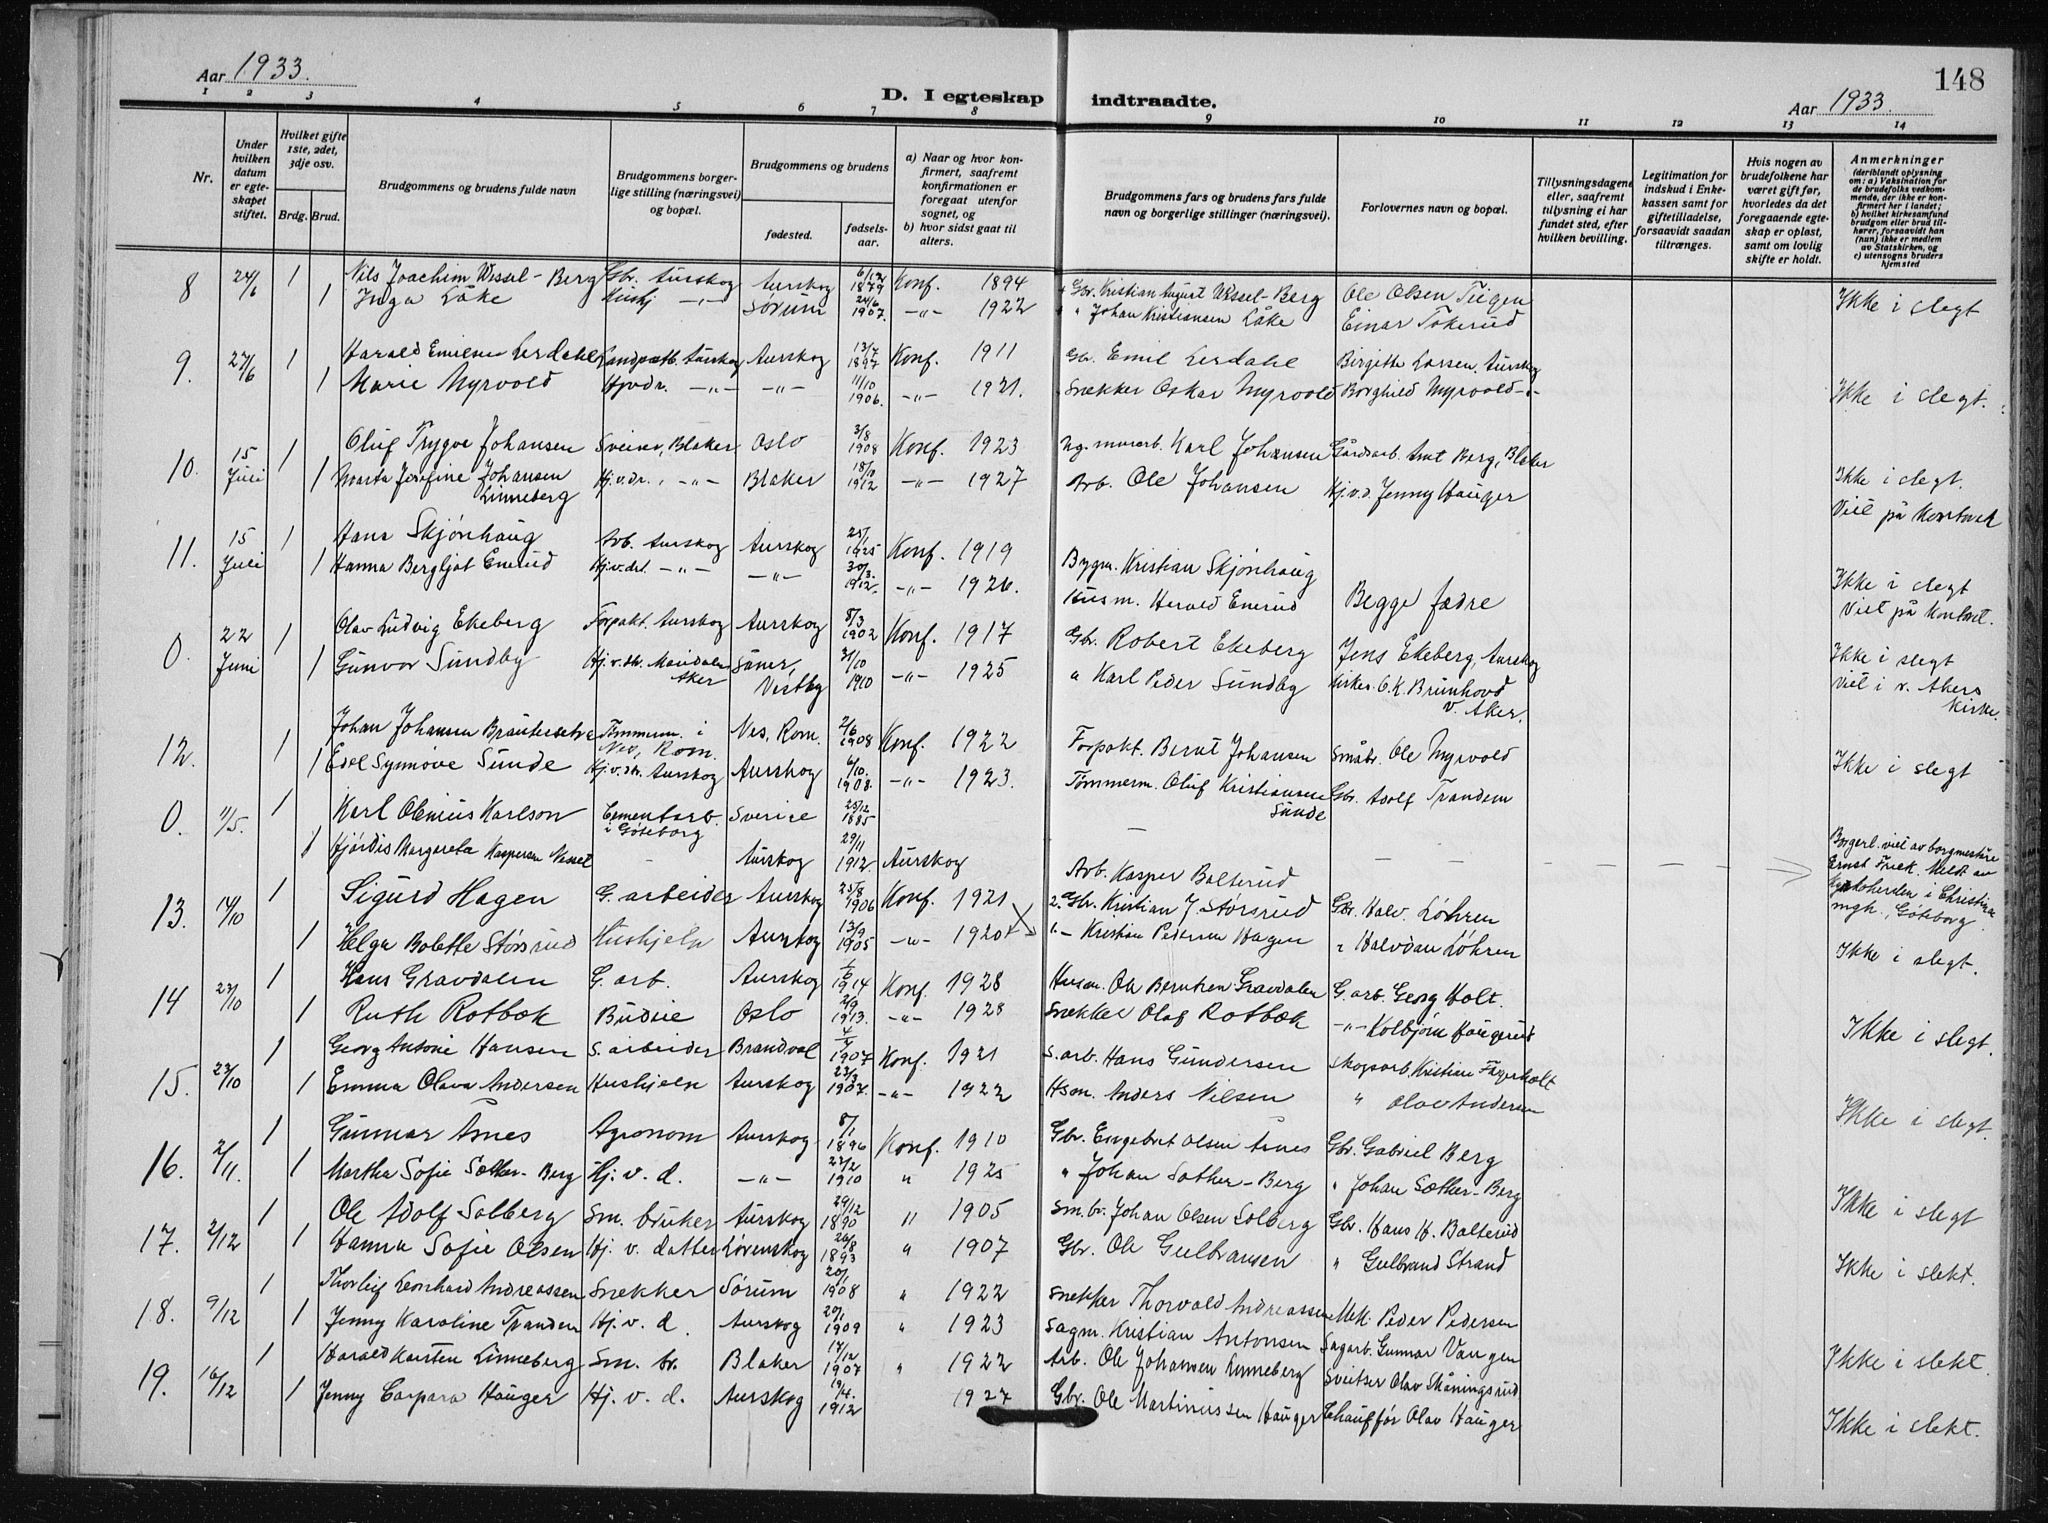 148
Aar 1933.
D. I egteskap indtraadte.
Aar 1933.
1 2 3 4 5 6 7 8 9 10 11 12 13 14
Nr.
Under hvilken datum er egteskapet stiftet.
Hvilket gifte 1ste, 2det, 3dje osv.
Brdg. Brud.
Brudgommens og brudens fulde navn
Brudgommens borgerlige stilling (næringsvei) og bopæl.
Brudgommens og brudens
fødested. fødselsaar.
a) Naar og hvor konfirmert, saafremt konfirmationen er foregaat utenfor sognet, og
b) hvor sidst gaat til alters.
Brudgommens fars og brudens fars fulde navn og borgerlige stillinger (næringsvei).
Forlovernes navn og bopæl.
Tillysningsdagene eller, saafremt tillysning ei har fundet sted, efter hvilken bevilling.
Legitimation for indskud i Enkekassen samt for giftetilladelse, forsaavidt saadan tiltrænges.
Hvis nogen av brudefolkene har været gift før, hvorledes da det foregaaende egteskap er opløst, samt om lovlig skifte er holdt.
Anmerkninger (deriblandt oplysning om: a) Vaksination for de brudefolks vedkommende, der ikke er konfirmert her i landet; b) hvilket kirkesamfund brudgom eller brud tilhører, forsaavidt han (hun) ikke er medlem av Statskirken, og c) utensogns bruders hjemsted
8 24/6 1 Nils Joachim Wessel-Berg Gbr. Aurskog Aurskog 6/12 1879 Konf. 1894 Gbr. Kristian August Wessel-Berg Ole Olsen Teigen Ikke i slegt
1 Inga Låke Hushj -"- Sørum 24/6 1907. -"- 1922 " Johan Kristiansen Låke Einar Tokerud
9. 27/6 1 Harald Emilius Lerdahl Aurskog Aurskog 13/7 1897 Konf. 1911 Gbr. Emil Lerdahl Birgitte Larsen, Aurskog
1 Marie Myrvold Hjvdr. -"- -"- 11/10 1906. -"- 1921. Snekker Oskar Myrvold Borghild Myrvold -"- Ikke i slegt.
10. 15 Juli 1 Oluf Trygve Johansen Sveiser, Blaker Oslo 3/8 1908 Konf. 1923 murarb. Karl Johansen Gårdsarb. Berg, Blaker
1 Marta Josefine Johansen Linneberg Hj.v.dr. -"- Blaker 18/10 1912 -"- 1927 Arb. Ole Johansen Hj.v.d. Jenny Hauger Ikke i slegt. Viet på Kontoret
11. 15 Juli 1 Hans Skjønhaug Arb. Aurskog Aurskog 25/1 Konf. 1919 Bygm. Kristian Skjønhaug Begge fædre
1 Hanna Bergljot Enerud Hj.v.dt. -"- -"- 30/3 1912. -"- 1926. Husm. Herald Enerud Ikke i slegt Viet på Kontoret.
0. 22 Juni 1 Olav Ludvig Ekeberg Forpakt. Aurskog Aurskog 8/3 1902 Konf. 1917 Gbr. Robert Ekeberg Jens Ekeberg, Aurskog
1 Gunvor Sundby Hj.v.dtr. Maridalen Aker Såner, Vestby 31/10 1910 -"- 1925 " Karl Peder Sundby O.K. Brunhovd V. Aker. Ikke i slegt Viet i v. Akers Kirke.
12. 1 Johan Johansen Tømmerm. i Nes, Rom. Nes, Rom. 2/6 1908 Konf. 1922 Forpakt. Bernt Johansen Småbr. Ole Myrvold
1 Edel Synnøve Sunde Hj.v.dtr. Aurskog Aurskog 6/10. 1908. -"- 1923. Tømmerm. Oluf Kristiansen Sunde Gbr. Adolf Trandem Ikke i slegt
0. 11/5. 1 Karl Olenius Karlson Cementarb. i Göteborg Sverige 25/12 1885 —
1 Hjørdis Margreta Kaspersen - Aurskog 29/11 1912. Aurskog Arb. Kasper Balterud — Borgerl. viet av borgmestare Ernst Meldt av Kyrkoherden i Christina mgh., Göteborg
13. 14/10 1 Sigurd Hagen G. arbeider Aurskog 25/8 1906 Konf. 1921 2. Gbr. Kristian J. Størsrud Gbr. Halv. Løhren
1 Helga Bolette Størsrud Hushjelp Aurskog 13/9 1905 -"- 1920 "- Kristian Pedersen Hagen " Halvdan Løhren Ikke i slegt.
14 27/10 1 Hans Gravdalen G. arb. Aurskog 1/6 1914 Konf. 1928 Husm. Ole Berntsen Gravdalen G. arb. Georg Holt.
1 Ruth Rotbæk Budeie Oslo 2/9 1913. -"- 1928 Snekker Olaf Rotbæk -"- Kolbjørn Haugerud Ikke i slegt.
15. 27/10 1 Georg Antoni Hansen S. arbeider Brandval 4/4 1907 Konf. 1921 S. arb. Hans Gundersen Skogsarb. Kristian Fagerholt
1 Emma Olava Andersen Hushjelp Aurskog 23/9 1907. -"- 1922 Hsm. Anders Nilsen " Olav Andersen Ikke i slegt.
16. 2/11. 1 Gunnar Åsnes Agronom Aurskog 8/1 1896 Konf. 1910 Gbr. Engebret Olsen Åsnes Gbr. Gabriel Berg
1 Martha Sofie Sæther-Berg Hj. v. d. -"- 22/2 1910 " 1925 " Johan Sæther-Berg " Johan Sæther-Berg Ikke i slegt
17. 2/12 1 Ole Adolf Solberg Sm. bruker Aurskog 29/12 1890 " 1905 Sm.br. Johan Olsen Solberg Gbr. Hans H. Balterud
1 Hanna Sofie Olsen Hj. v. datter Lørenskog 26/8 1893 " 1907 Gbr. Ole Gulbransen " Gulbrand Strand Ikke i slekt.
18. 9/12 1 Thorleif Leonhard Andreassen Snekker Sørum 20/1 1908 " 1922 Snekker Thorvald Andreassen Mek. Peder Pedersen
1 Jenny Karoline Trandem Hj. v. d. Aurskog 20/1 1909 " 1923 Sagm. Kristian Antonsen Sagarb. Gunnar Vangen Ikke i slekt.
19. 16/12 1 Harald Karsten Linneberg Sm. br. Blaker 17/12 1907 " 1922 Arb. Ole Johansen Linneberg Sveitser Olav Skåningsrud
1 Jenny Caspara Hauger Hj. v. d. Aurskog 19/4. 1912 1927 Gbr. Ole Martiniussen Hauger Chauffør Olav Hauger Ikke i slekt.